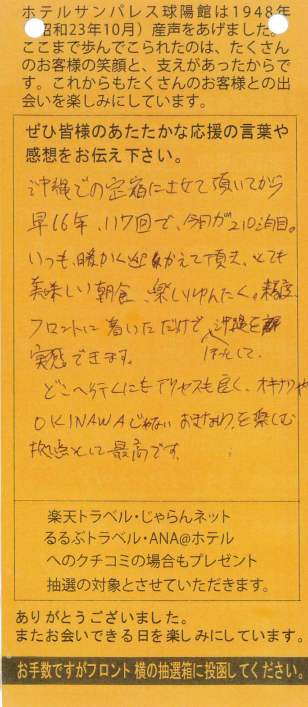 ホテルサンパレス球陽館は1948年
昭和23年10月）産声をあげました。
ここまで歩んでこられたのは、たくさん
のお客様の笑顔と、支えがあったからで
す。これからもたくさんのお客様との出
会いを楽しみにしています。
ぜひ皆様のあたたかな応援の言葉や
感想をお伝え下さい。
沖縄での定宿にさせて頂いてから
早16年、117回で、今日が210泊目。
いつも、暖かく迎えて頂き、とても
美味しい朝食、楽しいゆんたく。
フロントに着いただけで、沖縄を
実感できます。 ほっとして、
どこへ行くにもアクセスも良く、オキナワ
OKINAWAじゃない おきなわ を楽しむ
拠点として最高です。
楽天トラベル・じゃらんネット
るるぶトラベル・ANA@ホテル
へのクチコミの場合もプレゼント
抽選の対象とさせていただきます。
ありがとうございました。
またお会いできる日を楽しみにしています。
お手数ですがフロント横の抽選箱に投函してください。